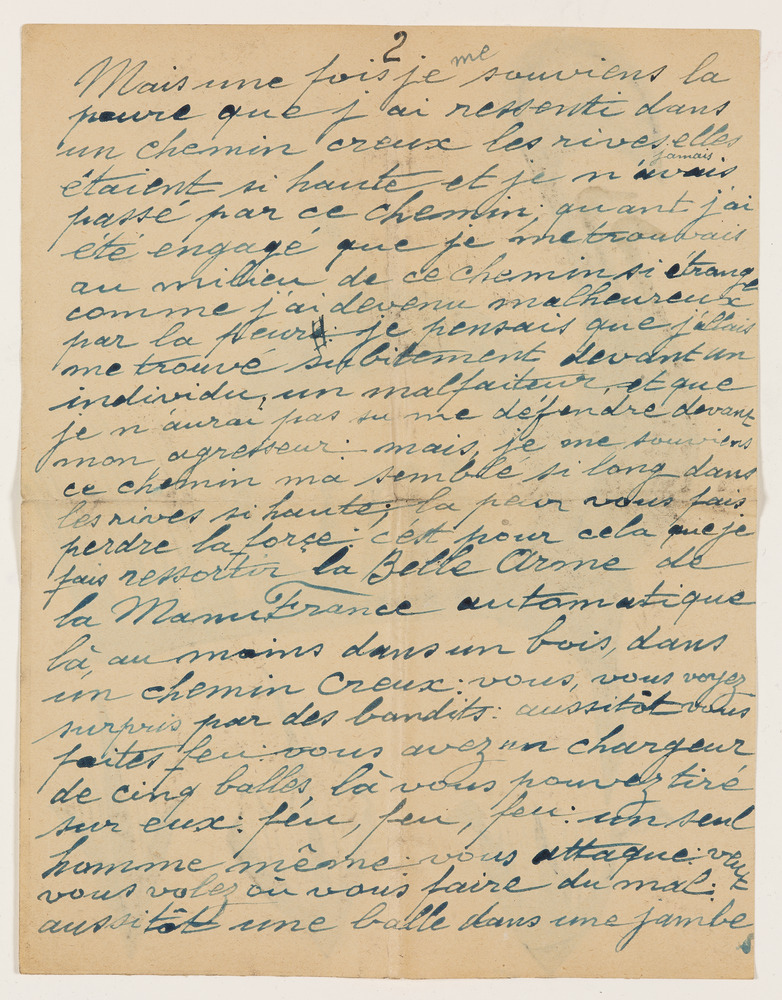 2
Mais une fois je me souviens la
peure que j ai ressenti dans
un chemin creux les rives elles
étaient si haute et je n'avais jamais
passé par ce chemin; quant j'ai
été engagé que je me trouvais
au milieu de ce chemin si étrange
comme j'ai devenu malheureux
par la peure: je pensais que j'allais
me trouvé subitement devant un
individu, un malfaiteur, et que
je n'aurai pas su me défendre devant
mon agresseur: mais, je me souviens
ce chemin ma semblé si long dans
les rives si haute; la peur vous fais
perdre la force: c'ést pour cela que je
fais ressortir la Belle Arme de
la ManuFrance automatique
là, au moins dans un bois, dans
un chemin Creux: vous, vous voyez
surpris par des bandits: aussitôt vous
faites feu: vous avez un chargeur
de cinq balles, là vous pouvez tiré
sur eux: féu, feu, feu: un seul
homme même: vous attaque: veut
vous volez où vous faire du mal:
aussitôt une balle dans une jambe